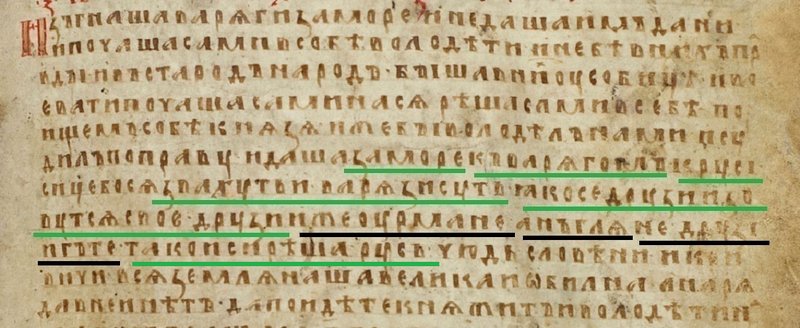 Изъгнаша варѧги за море и не даша имъ дани
и почаша сами в собѣ володѣти и не бѣ в нихъ пра
вды и въста родъ на родъ · быша въ ни оусобицѣ и во
евати почаша сами на сѧ рѣша сами в себѣ · по
ищемъ собѣ кнѧзѧ иже бы володѣлъ нами и су
дилъ по праву идаша за море к варѧгомъ к русі
сице бо сѧ звахуть и варѧзи суть ꙗко се друзии зо
вутсѧ свое · друзии же оурмане · анъглѧне друзі
и гъте · тако и си рѣша русь чюдь словѣни и кри
вичи всѧ землѧ наша велика и ѡбилна а нарѧ
да в неи нѣтъ · да поидѣте кнѧжитъ и володѣти н